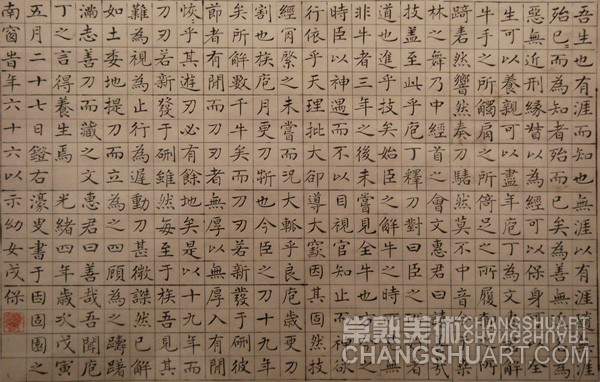 吾生也有涯而知也無涯以有涯隨無涯
殆已已而為知者殆而已矣為善無近名為
惡無近刑緣督以為經可以保身可以全
生可以養親可以盡年庖丁為文惠君解
牛手之所觸肩之所倚足之所履膝之所
踦砉然響然奏刀騞然莫不中音合於桑
林之舞乃中經首之會文惠君曰譆善哉
技蓋至此乎庖丁釋刀對曰臣之所好者
道也進乎技矣始臣之解牛之時所見无
非牛者三年之後未嘗見全牛也方今之
時臣以神遇而不以目視官知止而神欲
行依乎天理批大郤導大窾因其固然技
經肯綮之未嘗而況大軱乎良庖歲更刀
割也族庖月更刀折也今臣之刀十九年
矣所解數千牛矣而刀刃若新發于硎彼
節者有閒而刀刃者無厚以無厚入有閒
恢乎其游刃必有餘地矣是以十九年而
刀刃若新發于硎雖然每至于族吾見其
難為視為止行為遲動刀甚微謋然已解
如土委地提刀而立為之四顧為之躊躇
滿志善刀而藏之文惠君曰善哉吾聞庖
丁之言得養生焉 光緒四年歲次戊寅
五月二十七日鐙右濠叟書于固園之
南窗旹年六十六以示幼女茂保
常熟美術 CHANGSHUART
CHANGSHUART.COM